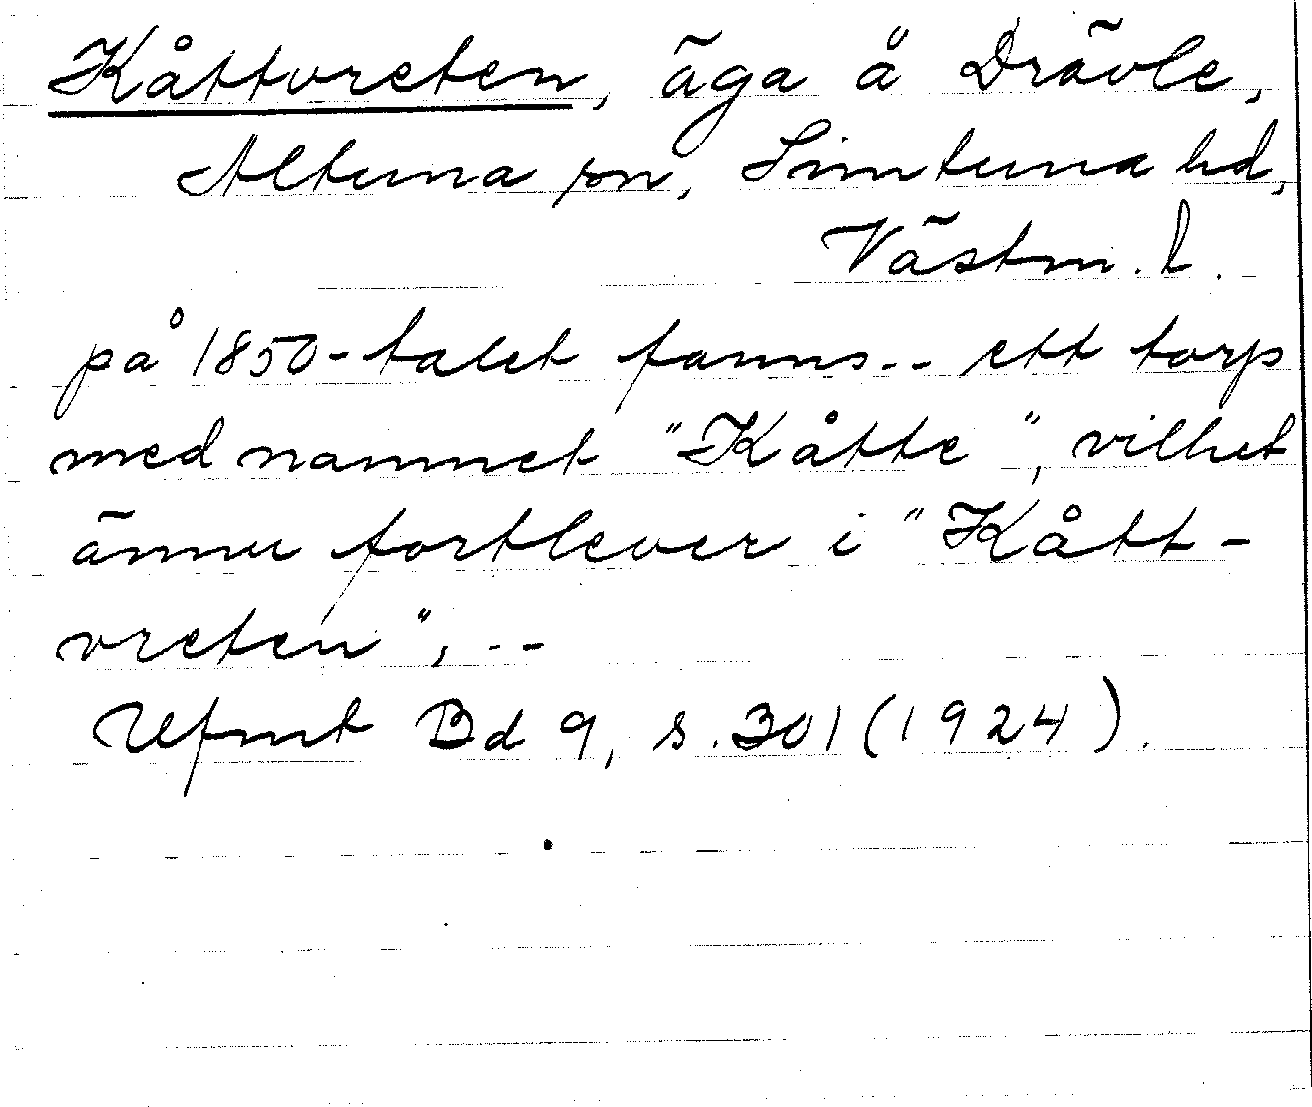 Kåttvreten, äga å Drävle,
Altuna sn, Simtuna hd,
Västm. l.
på 1850-talet fanns -- ett torp
med namnet "Kåtte", vilket
ännu fortlever i "Kått-
vreten", --
Ufmt Bd 9, s. 301 (1924).